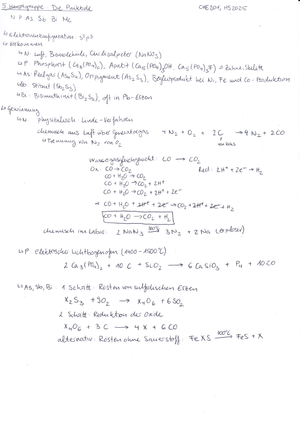 5. Hauptgruppe: Die Pnictide CHE201, HS2025
N P As Sb Bi Mc
↳ Elektronenkonfiguration: s²p³
↳ Vorkommen
↳ N: Luft, Chilesalpeter (NaNO₃)
↳ P: Phosphorit (Ca₃(PO₄)₂), Apatit (Ca₅(PO₄)₃OH, Ca₅(PO₄)₃F) → Zähne, Skelette
↳ As: Realgar (As₄S₄), Orpigment (As₂S₃), Begleitprodukt bei Ni, Fe und Co-Produktion
↳ Sb: Stibnit (Sb₂S₃)
↳ Bi: Bismuthinit (Bi₂S₃), oft in Pb-Erzen
↳ Gewinnung
↳ N: physikalisch: Linde-Verfahren
chemisch aus Luft über Generatorgas: 4 N₂ + O₂ + 2C → 4 N₂ + 2CO
↳ Trennung von N₂ von O₂
Wassergasgleichgewicht: CO → CO₂
Ox: CO → CO₂ Red: 2H⁺ + 2e⁻ → H₂
CO + H₂O → CO₂
CO + H₂O → CO₂ + 2H⁺
CO + H₂O → CO₂ + 2H⁺ + 2e⁻
⇒ CO + H₂O + 2H⁺ + 2e⁻ → CO₂ + 2H⁺ + 2e⁻ + H₂
CO + H₂O → CO₂ + H₂
chemisch im Labor: 2 NaN₃ → 3N₂ + 2 Na (explosiv)
↳ P: elektrischer Lichtbogenofen (1400-1500°C)
2 Ca₃(PO₄)₂ + 10 C + SiO₂ → 6 CaSiO₃ + P₄ + 10 CO
↳ As, Sb, Bi: 1. Schritt: Rösten von sulfidischen Erzen
X₂S₃ + 9O₂ → X₄O₆ + 6SO₂
2. Schritt: Reduktion der Oxide
X₄O₆ + 3 C → 4 X + 6 CO
alternativ: Rösten ohne Sauerstoff: FeXS → FeS + X